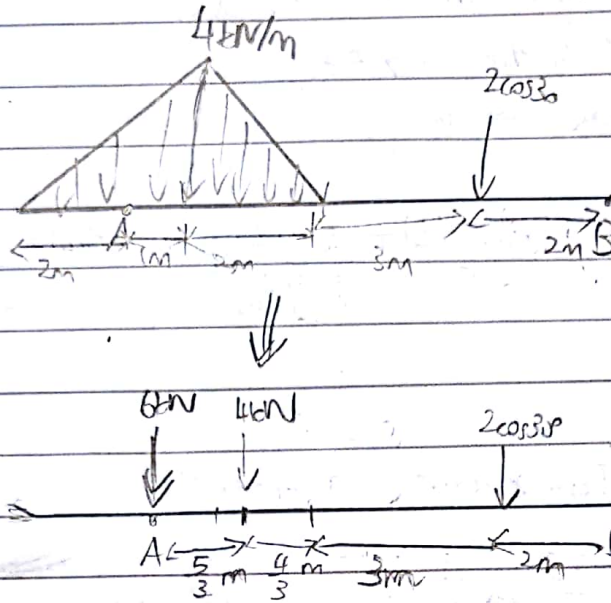 4kN/m
2cos30
A
2m
1m
2m
3m
2m
B
6kN
4kN
2cos30°
A
5/3 m
4/3 m
3m
2m